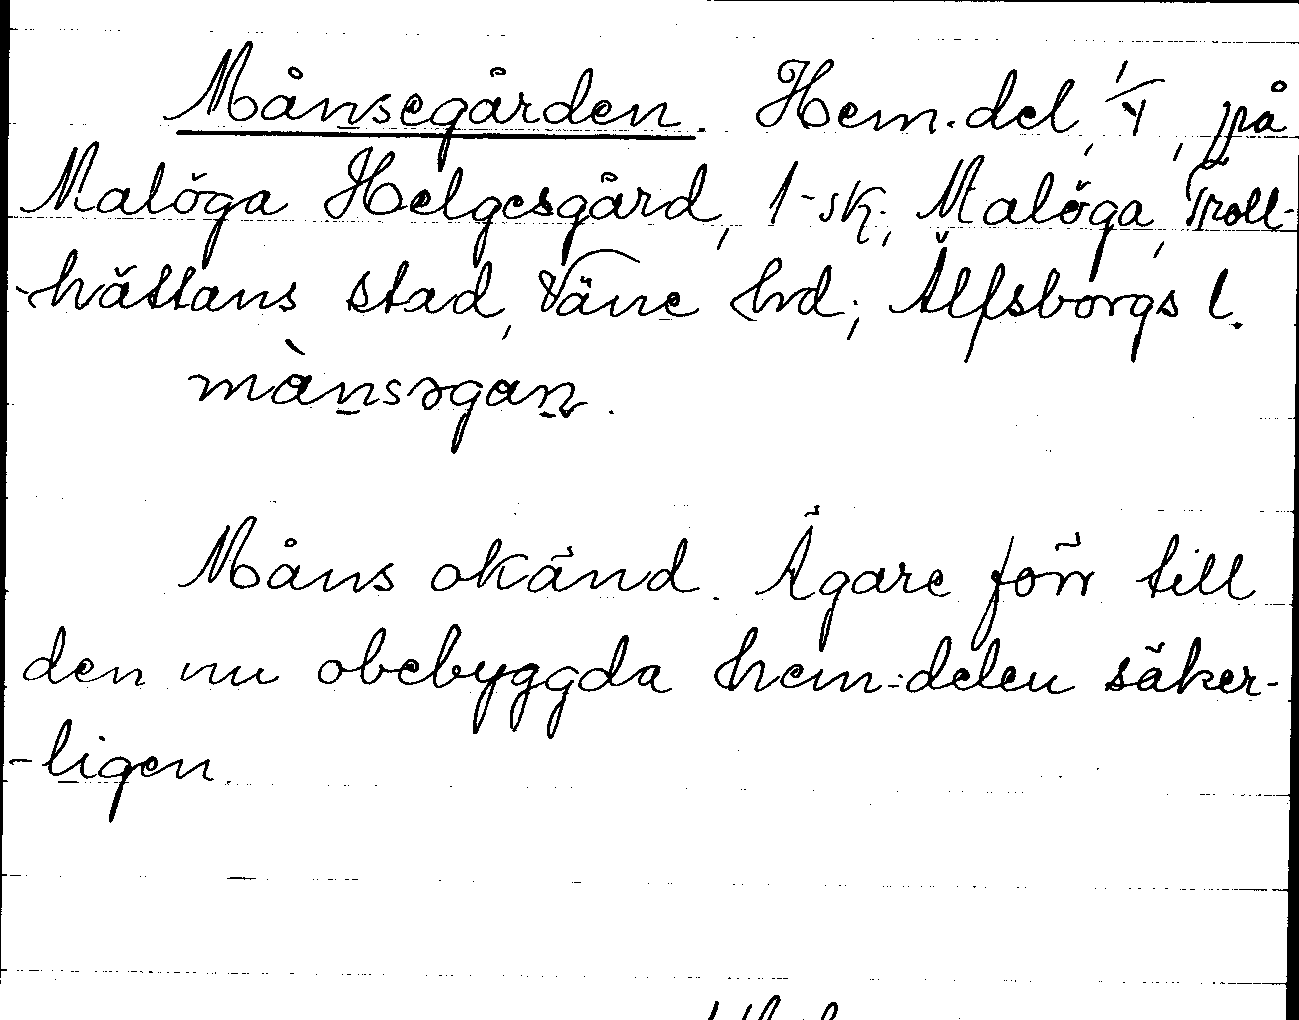 Månsegården. Hem.del, 1/4, på
Malöga Helgesgård, 1-sk., Malöga, Troll-
-hättans stad, Väne hd; Älfsborgs l.
mànsəgaṉ.
Måns okänd. Ägare förr till
den nu obebyggda hem:delen säker-
-ligen.